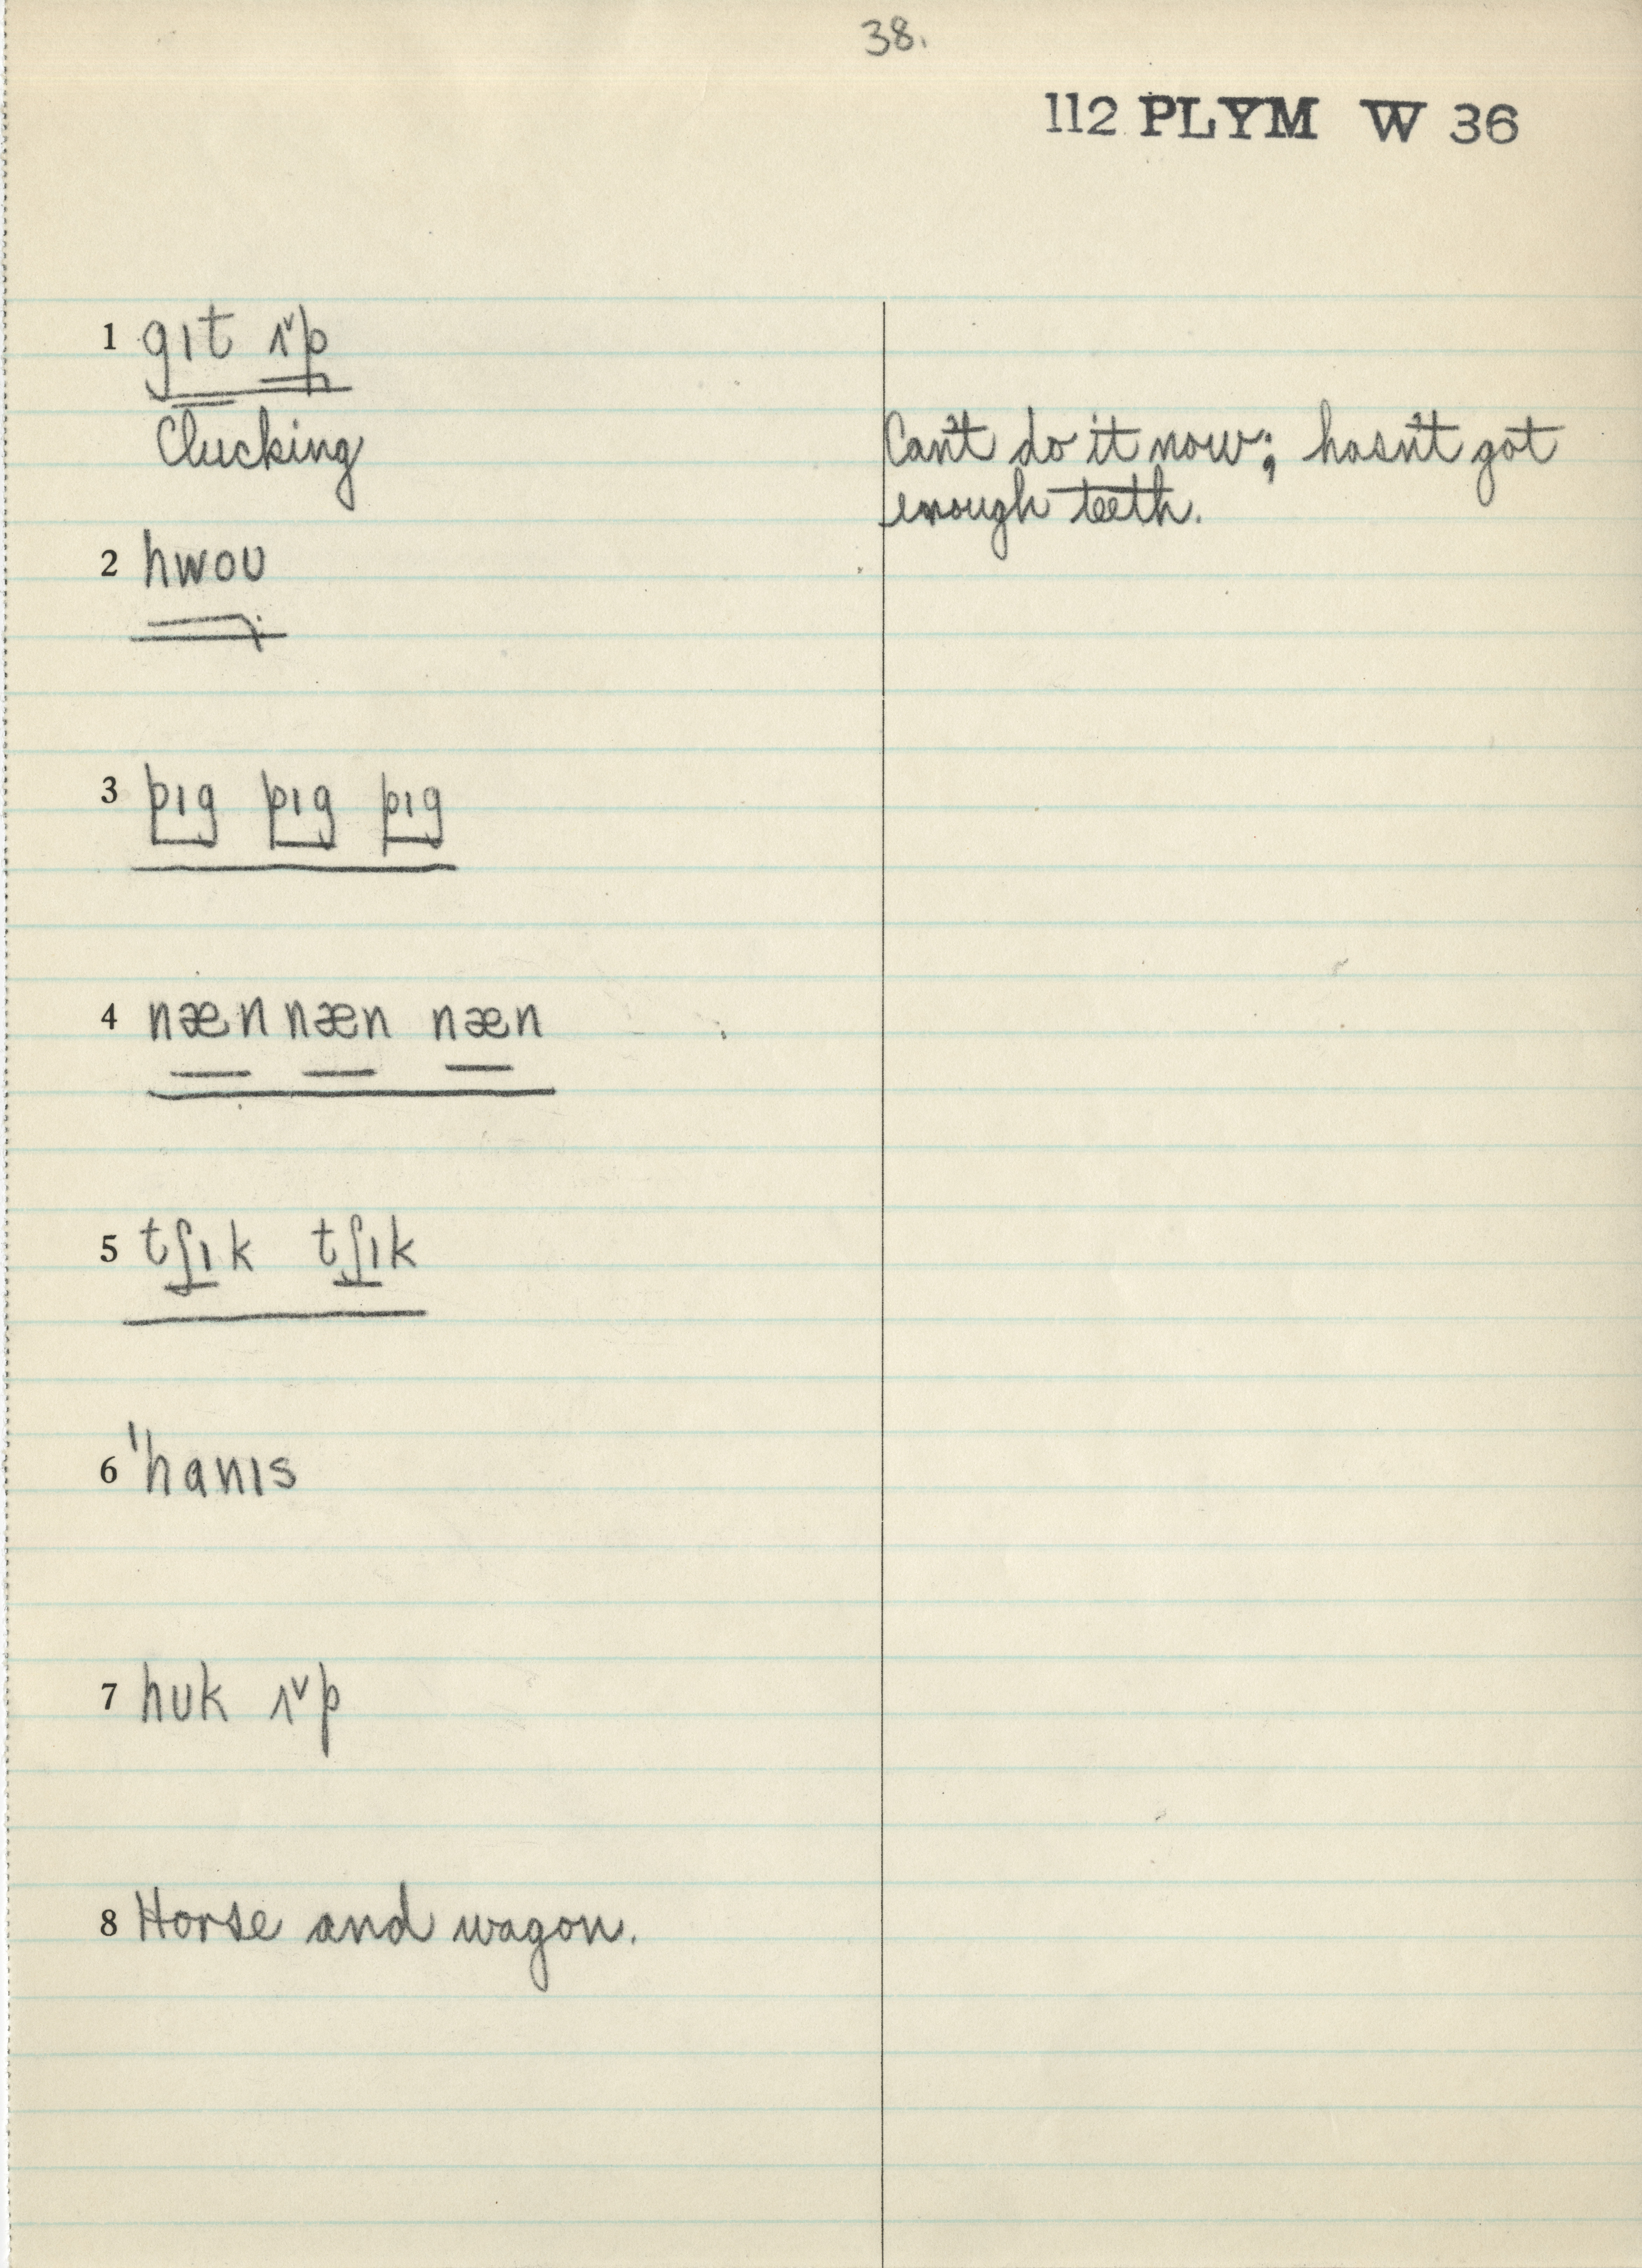 38.
112 PLYM W 36
1 gɪt ʌ˅p
Clucking
Can't do it now; hasn't got
enough teeth.
2 hwoʊ
3 pɪg pɪg pɪg
4 næn næn næn
5 tʃɪk tʃɪk
6 'hanɪs
7 hʊk ʌ˅p
8 Horse and wagon.